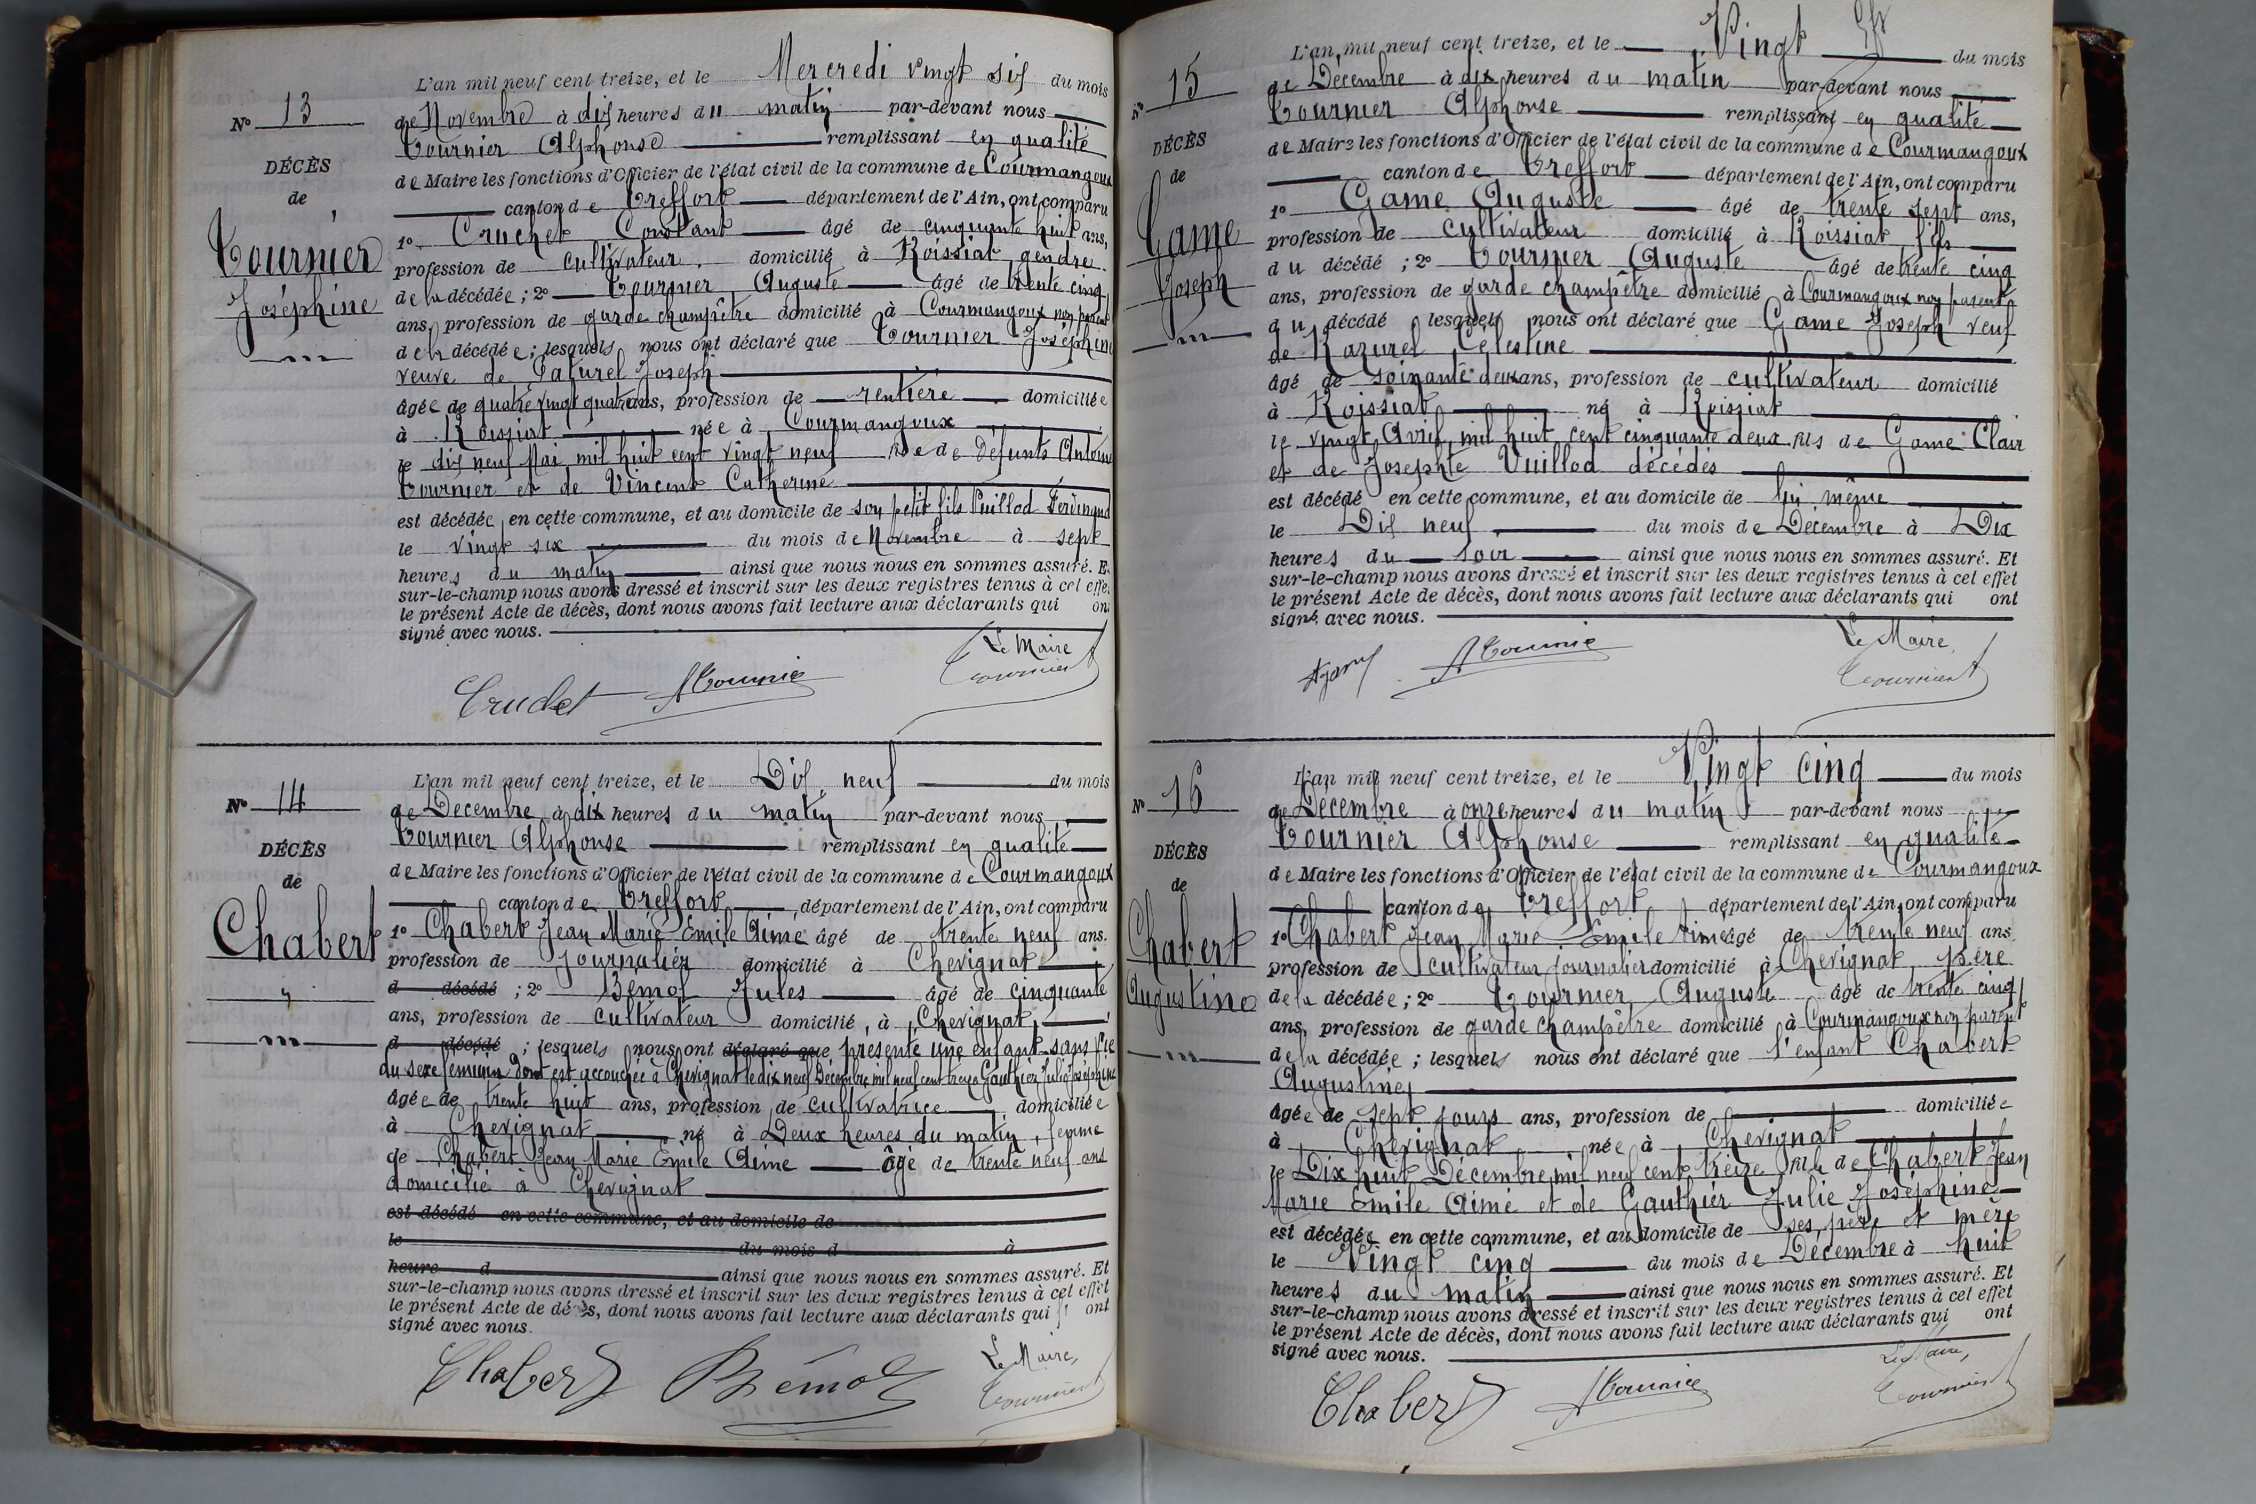 L'an mil neuf cent treize, et le Mercredi vingt six du mois
N° 13
de Novembre à dix heures du matin par-devant nous
Tournier Alphonse remplissant en qualité
DÉCÈS
de Maire les fonctions d'Officier de l'état civil de la commune de Courmangoux
de
canton de Treffort département de l'Ain, ont comparu
Tournier
1° Cruchet Constant âgé de cinquante huit ans,
profession de cultivateur domicilié à Roissiat, gendre
Joséphine
de la décédée ; 2° Tournier Auguste âgé de trente cinq
ans, profession de garde champêtre domicilié à Courmangoux non parent
de la décédée ; lesquels nous ont déclaré que Tournier Joséphine
veuve de Joseph
âgée de quatre vingt quatre ans, profession de rentière domiciliée
à Roissiat née à Courmangoux
le dix neuf Mai mil huit cent vingt neuf fille de défunts Antoine
Tournier et de Vincent Catherine
est décédée en cette commune, et au domicile de son petit fils Puillod Ferdinand
le vingt six du mois de Novembre à sept
heures du matin ainsi que nous nous en sommes assuré. Et
sur-le-champ nous avons dressé et inscrit sur les deux registres tenus à cet effet
le présent Acte de décès, dont nous avons fait lecture aux déclarants qui ont
signé avec nous.
Le Maire
Cruchet ATournier Tournier
L'an mil neuf cent treize, et le Dix neuf du mois
N° 14
de Decembre à dix heures du matin par-devant nous
Tournier Alphonse remplissant en qualité
DÉCÈS
de Maire les fonctions d'Officier de l'état civil de la commune de Courmangoux
de
canton de Treffort, département de l'Ain, ont comparu
Chabert
1° Chabert Jean Marie Emile Aimé âgé de trente neuf ans.
profession de Journalier domicilié à Chevignat
d décédé ; 2° Bémol Jules âgé de cinquante
ans, profession de cultivateur domicilié à Chevignat
d décédé ; lesquels nous ont déclaré que présenté une enfant sans vie
du sexe féminin dont est accouchée à Chevignat le dix neuf Décembre mil neuf cent treize Gauthier Julie Joséphine
âgée de trente huit ans, profession de cultivatrice domiciliée
à Chevignat né à Deux heures du matin, femme
de Chabert Jean Marie Emile Aimé âgé de trente neuf ans
domicilié à Chevignat
est décédé en cette commune, et au domicile de
le du mois d à
heure d ainsi que nous nous en sommes assuré. Et
sur-le-champ nous avons dressé et inscrit sur les deux registres tenus à cet effet
le présent Acte de décès, dont nous avons fait lecture aux déclarants qui ont
signé avec nous.
Le Maire,
Chabert Bémol Tournier
L'an mil neuf cent treize, et le Vingt du mois
N° 15
de Décembre à dix heures du matin par-devant nous
Tournier Alphonse remplissant en qualité
DÉCÈS
de Maire les fonctions d'Officier de l'état civil de la commune de Courmangoux
de
canton de Treffort département de l'Ain, ont comparu
Game
1° Game Auguste âgé de trente sept ans,
profession de cultivateur domicilié à Roissiat, fils
Joseph
du décédé ; 2° Tournier Auguste âgé de trente cinq
ans, profession de garde champêtre domicilié à Courmangoux non parent
du décédé lesquels nous ont déclaré que Game Joseph veuf
de Razurel Célestine
âgé de soixante deux ans, profession de cultivateur domicilié
à Roissiat né à Roissiat
le vingt Avril mil huit cent cinquante deux fils de Game Clair
et de Josephte Vuillod décédés
est décédé en cette commune, et au domicile de lui même
le Dix neuf du mois de Décembre à Dix
heures du soir ainsi que nous nous en sommes assuré. Et
sur-le-champ nous avons dressé et inscrit sur les deux registres tenus à cet effet
le présent Acte de décès, dont nous avons fait lecture aux déclarants qui ont
signé avec nous.
Le Maire
AGame ATournier Tournier
L'an mil neuf cent treize, et le Vingt cinq du mois
N° 16
de Décembre à onze heures du matin par-devant nous
Tournier Alphonse remplissant en qualité
DÉCÈS
de Maire les fonctions d'Officier de l'état civil de la commune de Courmangoux
de
canton de Treffort département de l'Ain, ont comparu
Chabert
1° Chabert Jean Marie Emile Aimé âgé de trente neuf ans
profession de cultivateur journalier domicilié à Chevignat, père
Augustine
de la décédée ; 2° Tournier Auguste âgé de trente cinq
ans, profession de garde champêtre domicilié à Courmangoux non parent
de la décédée ; lesquels nous ont déclaré que l'enfant Chabert
Augustine
âgée de sept jours ans, profession de domiciliée
à Chevignat née à Chevignat
le Dix huit Décembre mil neuf cent treize fille de Chabert Jean
Marie Emile Aimé et de Gauthier Julie Joséphine
est décédée en cette commune, et au domicile de ses père et mère
le Vingt cinq du mois de Décembre à huit
heures du matin ainsi que nous nous en sommes assuré. Et
sur-le-champ nous avons dressé et inscrit sur les deux registres tenus à cet effet
le présent Acte de décès, dont nous avons fait lecture aux déclarants qui ont
signé avec nous.
Le Maire,
Chabert ATournier Tournier